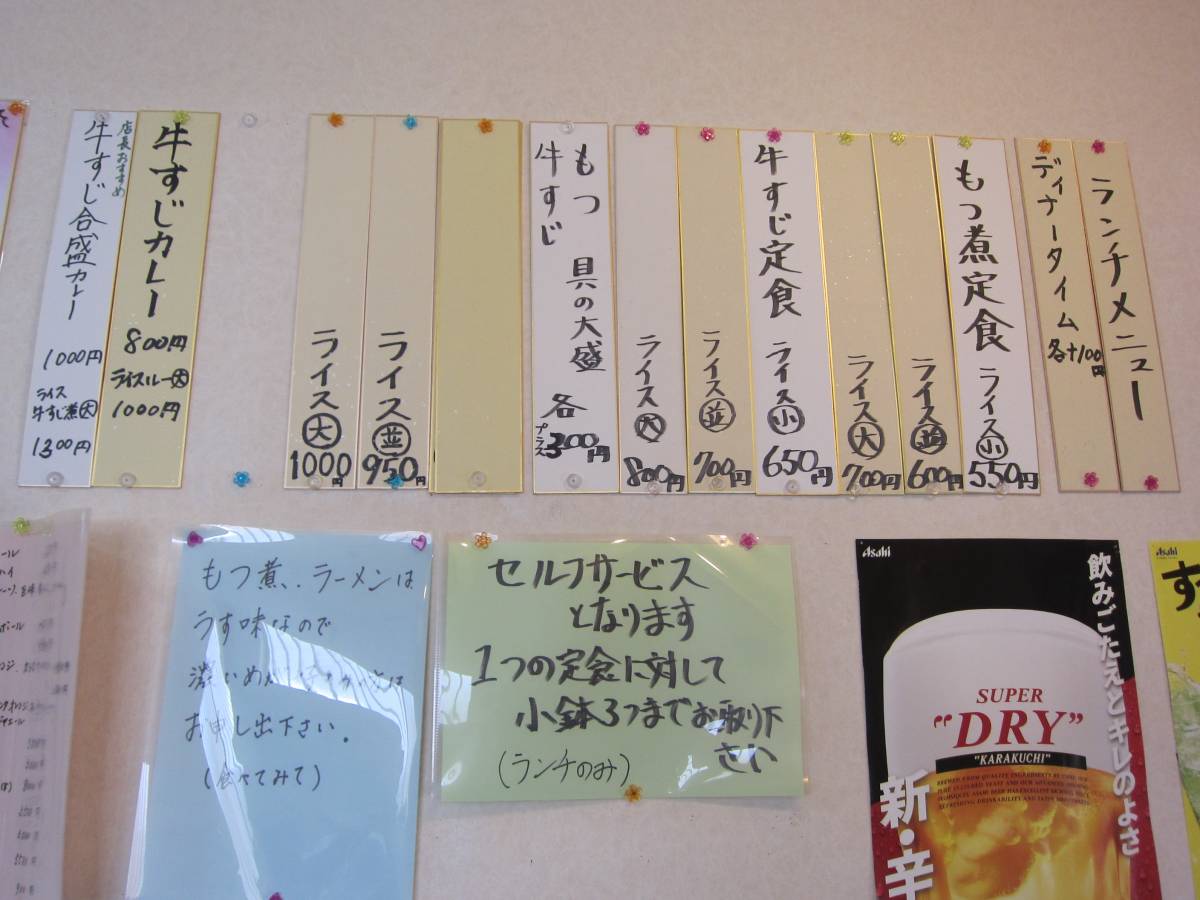 ランチメニュー
ディナータイム
各+100円
もつ煮定食 ライス小 550円
ライス並 600円
ライス大 700円
牛すじ定食 ライス小 650円
ライス並 700円
ライス大 800円
もつ 具の大盛
牛すじ 各プラス300円
ライス並 950円
ライス大 1000円
牛すじカレー 800円
ライスルー大 1000円
店長おすすめ
牛すじ合盛カレー 1000円
ライス
牛すじ煮大
1300円
もつ煮、ラーメンは
うす味なので
お申し出下さい。
(食べてみて)
セルフサービス
となります
1つの定食に対して
小鉢3つまでお取り下
さい
(ランチのみ)
Asahi
飲みごたえとキレのよさ
SUPER
"DRY"
"KARAKUCHI"
新・辛
Asahi
す